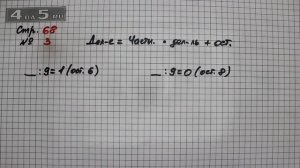 4 
Стр. 68
№ 3
Дел-е = Частн. • дел-ль + ост.
_ : 9 = 1 (ост. 6)
_ : 9 = 0 (ост. 8)